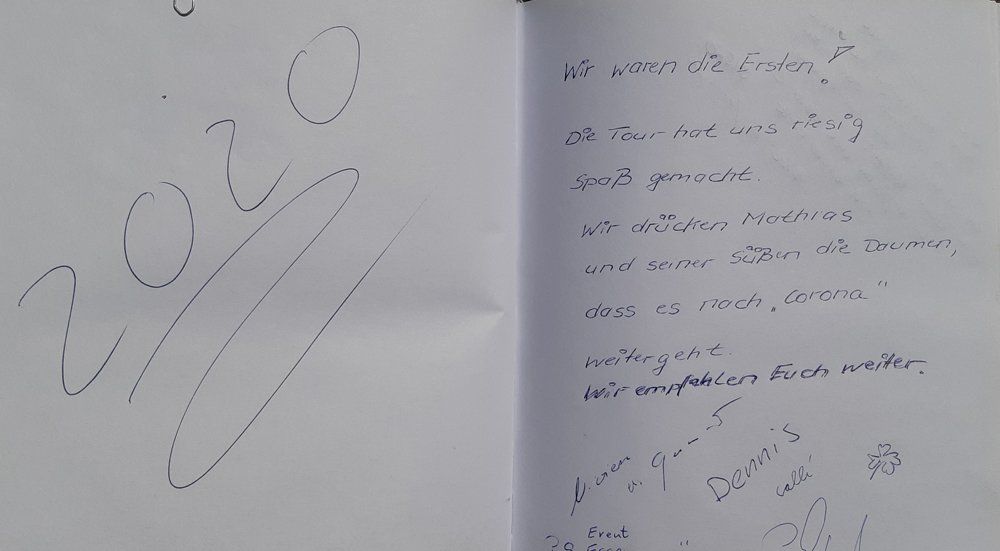 2020
Wir waren die Ersten!
Die Tour hat uns riesig
Spaß gemacht.
Wir drücken Mathias
und seiner Süßen die Daumen,
dass es nach „Corona"
weitergeht.
Wir empfehlen Euch weiter.
Dennis
Event